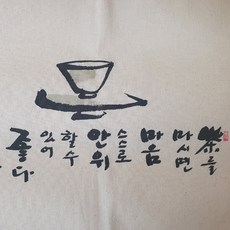 茶를
마시면
마음
스스로
안위
할수
있어
좋다